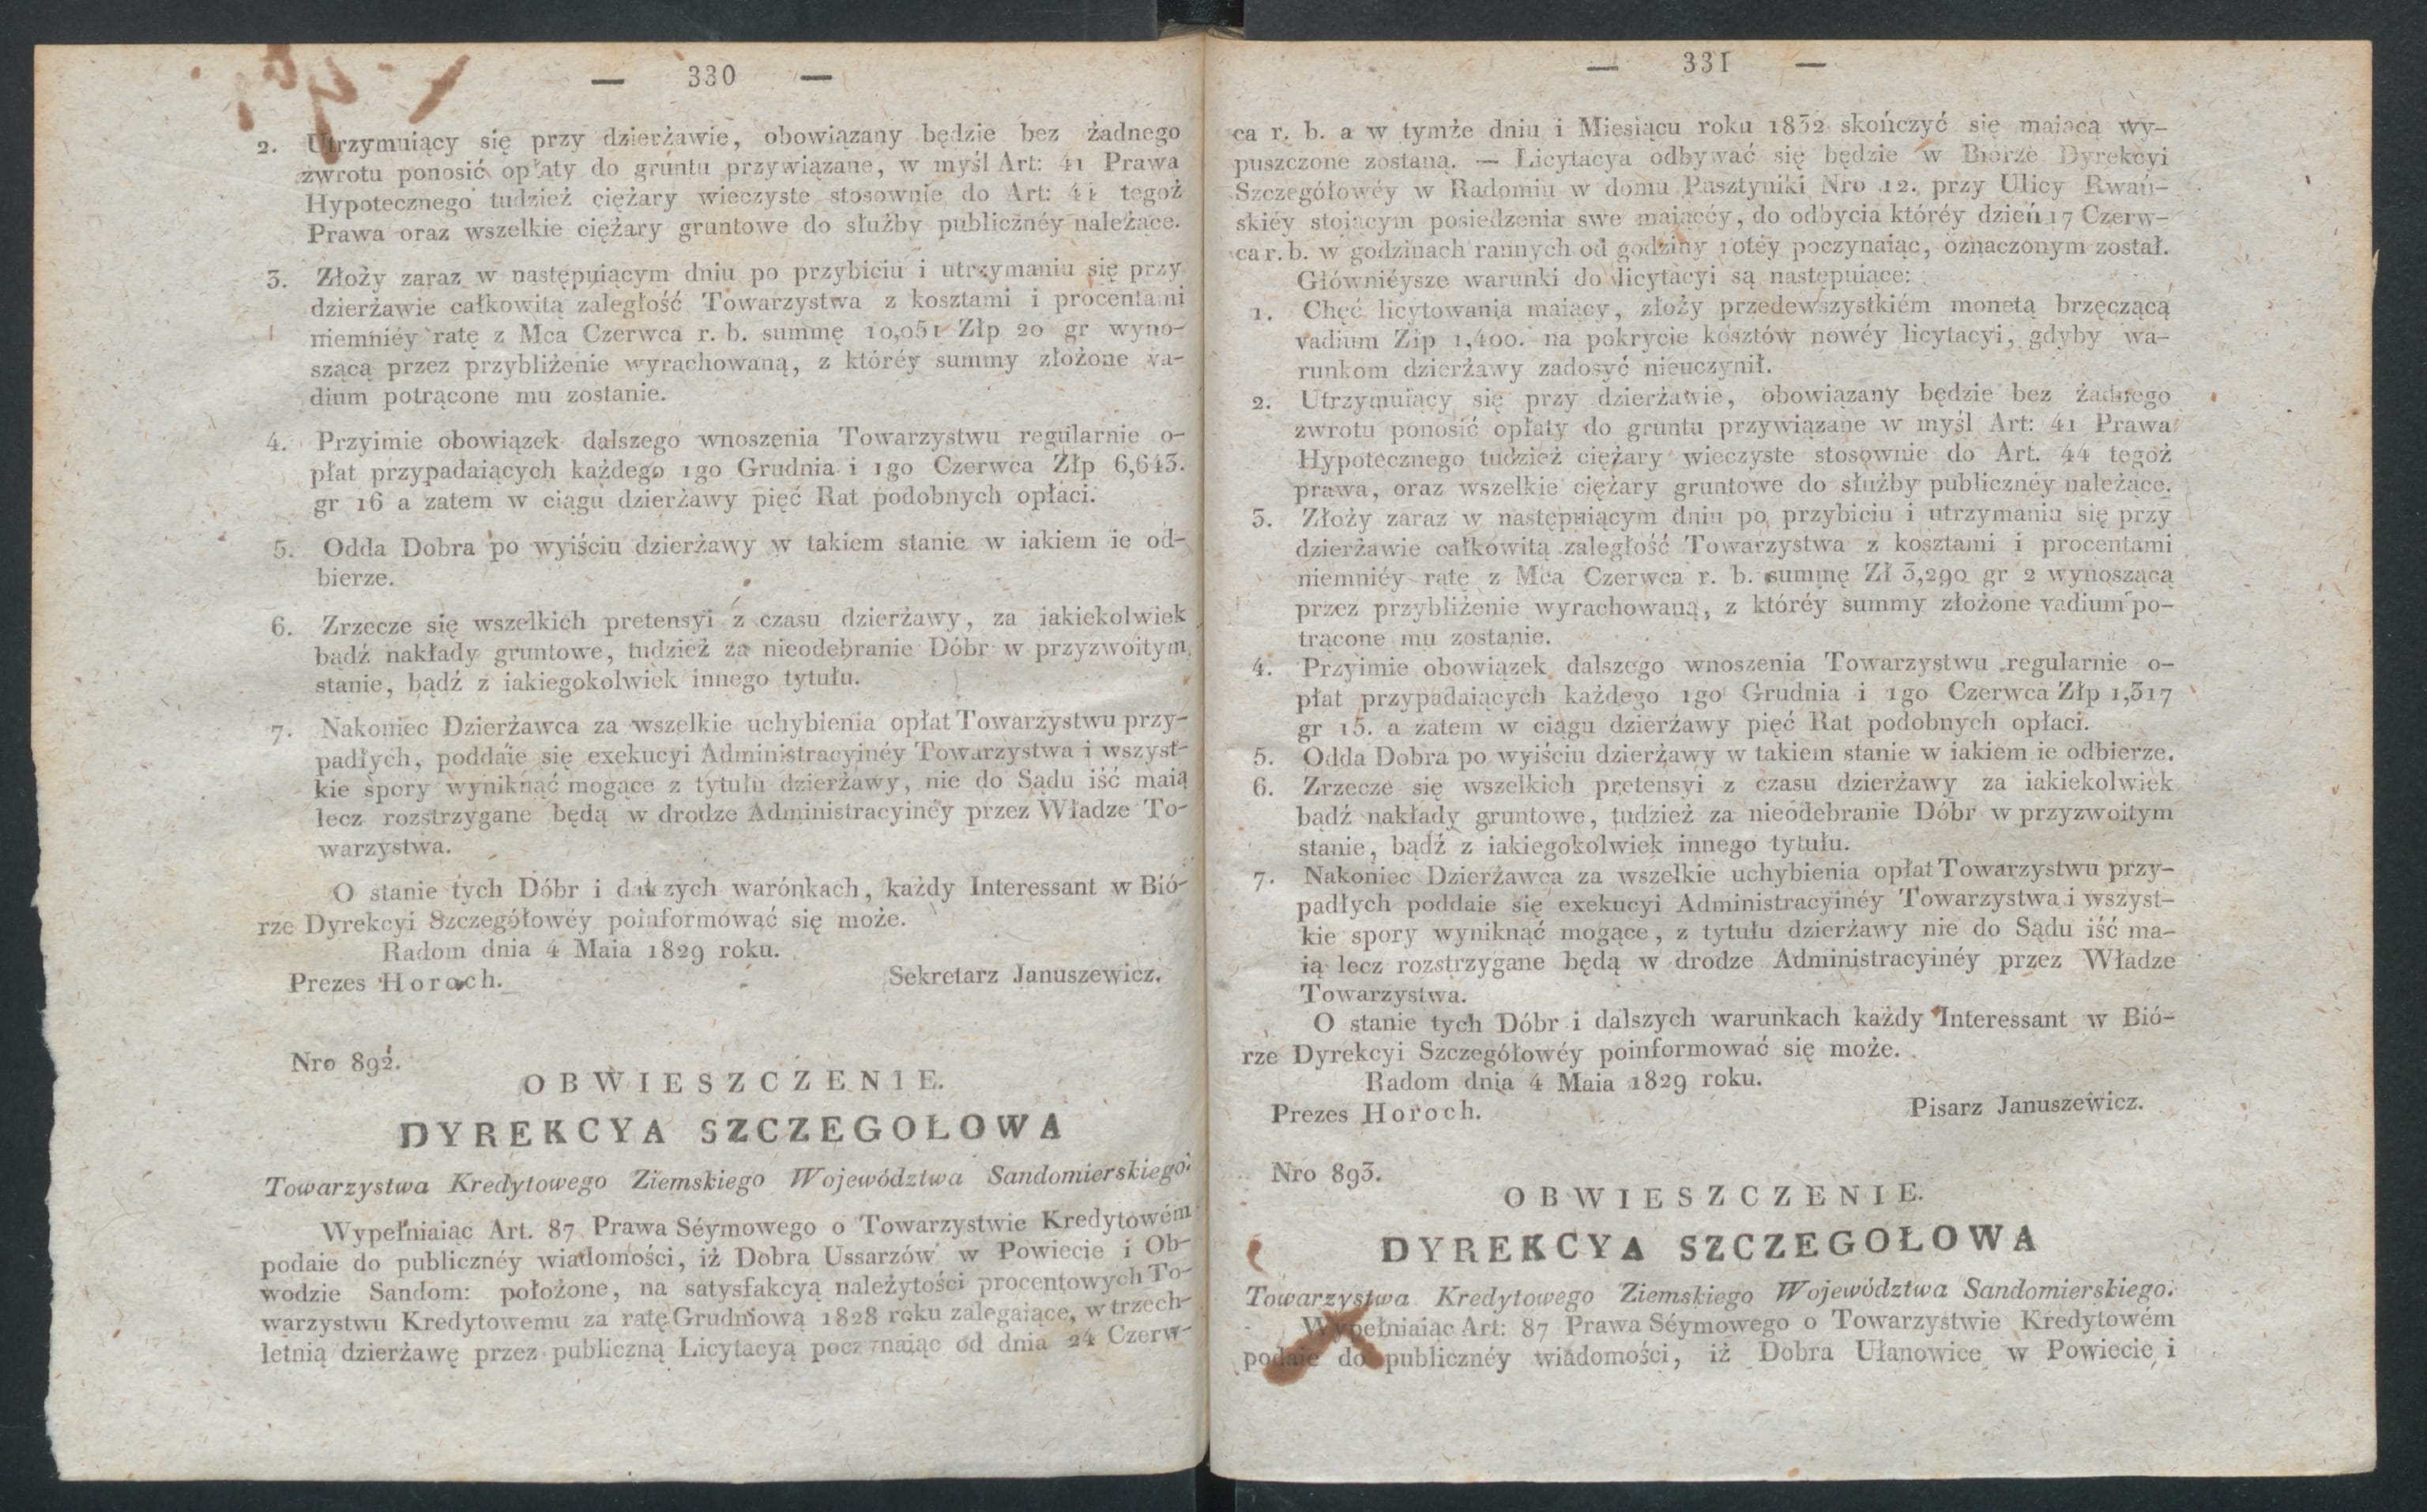 — 330 —
2. Utrzymuiący się przy dzierżawie, obowiązany będzie bez żadnego
zwrotu ponosić opłaty do gruntu przywiązane, w myśl Art: 41 Prawa
Hypotecznego tudzież ciężary wieczyste stosownie do Art: 44 tegoż
Prawa oraz wszelkie ciężary gruntowe do służby publicznéy należące.
3. Złoży zaraz w następuiącym dniu po przybiciu i utrzymaniu się przy
dzierżawie całkowitą zaległość Towarzystwa z kosztami i procentami
niemniéy ratę z Mca Czerwca r. b. summę 10,051 Złp 20 gr wyno-
szącą przez przybliżenie wyrachowaną, z któréy summy złożone va-
dium potrącone mu zostanie.
4. Przyimie obowiązek dalszego wnoszenia Towarzystwu regularnie o-
płat przypadaiących każdego 1go Grudnia i 1go Czerwca Złp 6,643.
gr 16 a zatem w ciągu dzierżawy pięć Rat podobnych opłaci.
5. Odda Dobra po wyiściu dzierżawy w takiem stanie w iakiem ie od-
bierze.
6. Zrzecze się wszelkich pretensyi z czasu dzierżawy, za iakiekolwiek
bądź nakłady gruntowe, tudzież za nieodebranie Dóbr w przyzwoitym
stanie, bądź z iakiegokolwiek innego tytułu.
7. Nakoniec Dzierżawca za wszelkie uchybienia opłat Towarzystwu przy-
padłych, poddaie się exekucyi Administracyinéy Towarzystwa i wszyst-
kie spory wyniknąć mogące z tytułu dzierżawy, nie do Sądu iść maią
lecz rozstrzygane będą w drodze Administracyinéy przez Władze To-
warzystwa.
O stanie tych Dóbr i dalszych warónkach, każdy Interessant w Bió-
rze Dyrekcyi Szczegółowéy poinformować się może.
Radom dnia 4 Maia 1829 roku.
Prezes Horoch. Sekretarz Januszewicz.
Nro 892.
OBWIESZCZENIE.
DYREKCYA SZCZEGOŁOWA
Towarzystwa Kredytowego Ziemskiego Województwa Sandomierskiego.
Wypełniaiąc Art. 87 Prawa Séymowego o Towarzystwie Kredytowém
podaie do publicznéy wiadomości, iż Dobra Ussarzów w Powiecie i Ob-
wodzie Sandom: położone, na satysfakcyą należytości procentowych To-
warzystwu Kredytowemu za ratę Grudniową 1828 roku zalegaiące, w trzech-
letnią dzierżawę przez publiczną Licytacyą poczynaiąc od dnia 24 Czerw-
— 331 —
ca r. b. a w tymże dniu i Miesiącu roku 1832 skończyć się maiącą wy-
puszczone zostaną. — Licytacya odbywać się będzie w Biórze Dyrekcyi
Szczegółowéy w Radomiu w domu Pusztyniki Nro 12. przy Ulicy Rwań-
skiéy stoiącym posiedzenia swe maiącéy, do odbycia któréy dzień 17 Czerw-
ca r. b. w godzinach rannych od godziny 10téy poczynaiąc, oznaczonym został.
Główniéysze warunki do licytacyi są następuiące:
1. Chęć licytowania maiący, złoży przedewszystkiém monetą brzęczącą
vadium Złp 1,400. na pokrycie kosztów nowéy licytacyi, gdyby wa-
runkom dzierżawy zadosyć nieuczynił.
2. Utrzymuiący się przy dzierżawie, obowiązany będzie bez żadnego
zwrotu ponosić opłaty do gruntu przywiązane w myśl Art: 41 Prawa
Hypotecznego tudzież ciężary wieczyste stosownie do Art. 44 tegoż
prawa, oraz wszelkie ciężary gruntowe do służby publicznéy należące.
3. Złoży zaraz w następuiącym dniu po przybiciu i utrzymaniu się przy
dzierżawie całkowitą zaległość Towarzystwa z kosztami i procentami
niemniéy ratę z Mca Czerwca r. b. summę Zł 3,290 gr 2 wynoszącą
przez przybliżenie wyrachowaną, z któréy summy złożone vadium po-
trącone mu zostanie.
4. Przyimie obowiązek dalszego wnoszenia Towarzystwu regularnie o-
płat przypadaiących każdego 1go Grudnia i 1go Czerwca Złp 1,317
gr 15. a zatem w ciągu dzierżawy pięć Rat podobnych opłaci.
5. Odda Dobra po wyiściu dzierżawy w takiem stanie w iakiem ie odbierze.
6. Zrzecze się wszelkich pretensyi z czasu dzierżawy za iakiekolwiek
bądź nakłady gruntowe, tudzież za nieodebranie Dóbr w przyzwoitym
stanie, bądź z iakiegokolwiek innego tytułu.
7. Nakoniec Dzierżawca za wszelkie uchybienia opłat Towarzystwu przy-
padłych poddaie się exekucyi Administracyinéy Towarzystwa i wszyst-
kie spory wyniknąć mogące, z tytułu dzierżawy nie do Sądu iść ma-
ią lecz rozstrzygane będą w drodze Administracyinéy przez Władze
Towarzystwa.
O stanie tych Dóbr i dalszych warunkach każdy Interessant w Bió-
rze Dyrekcyi Szczegółowéy poinformować się może.
Radom dnia 4 Maia 1829 roku.
Prezes Horoch. Pisarz Januszewicz.
Nro 893.
OBWIESZCZENIE.
DYREKCYA SZCZEGOŁOWA
Towarzystwa Kredytowego Ziemskiego Województwa Sandomierskiego.
Wypełniaiąc Art: 87 Prawa Séymowego o Towarzystwie Kredytowém
podaie do publicznéy wiadomości, iż Dobra Ułanowice w Powiecie i